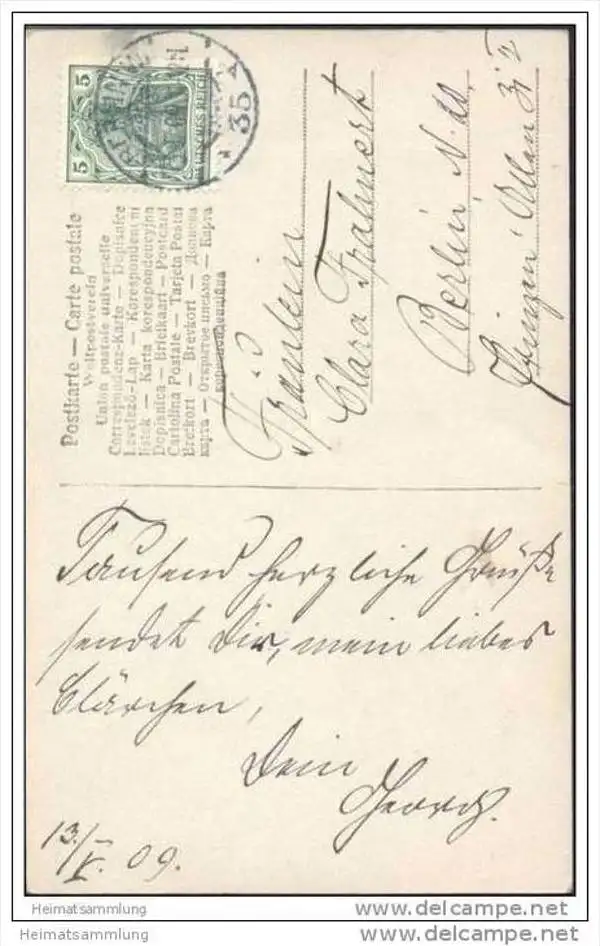 5
5
DEUTSCHES REICH
BERLIN
* 35 A
Postkarte — Carte postale
Weltpostverein
Union postale universelle
Correspondenz-Karte — Dopisnice
Levelező-Lap — Korespondencni
listek — Karta korespondencyjna
Dopisnica — Briefkaart — Postcard
Cartolina Postale — Tarjeta Postal
Brefkort — Brevkort — Дописна
карта — Открытое письмо — Карта
Fräulein
Clara Frahnert
Berlin, N. 20,
Prinzen Allee
Tausend herzliche Grüße
sendet Dir, mein liebes
Clärchen,
Dein
Georg.
13./V. 09.
Heimatsammlung
Heimatsammlung
www.delcampe.net
www.delcampe.net